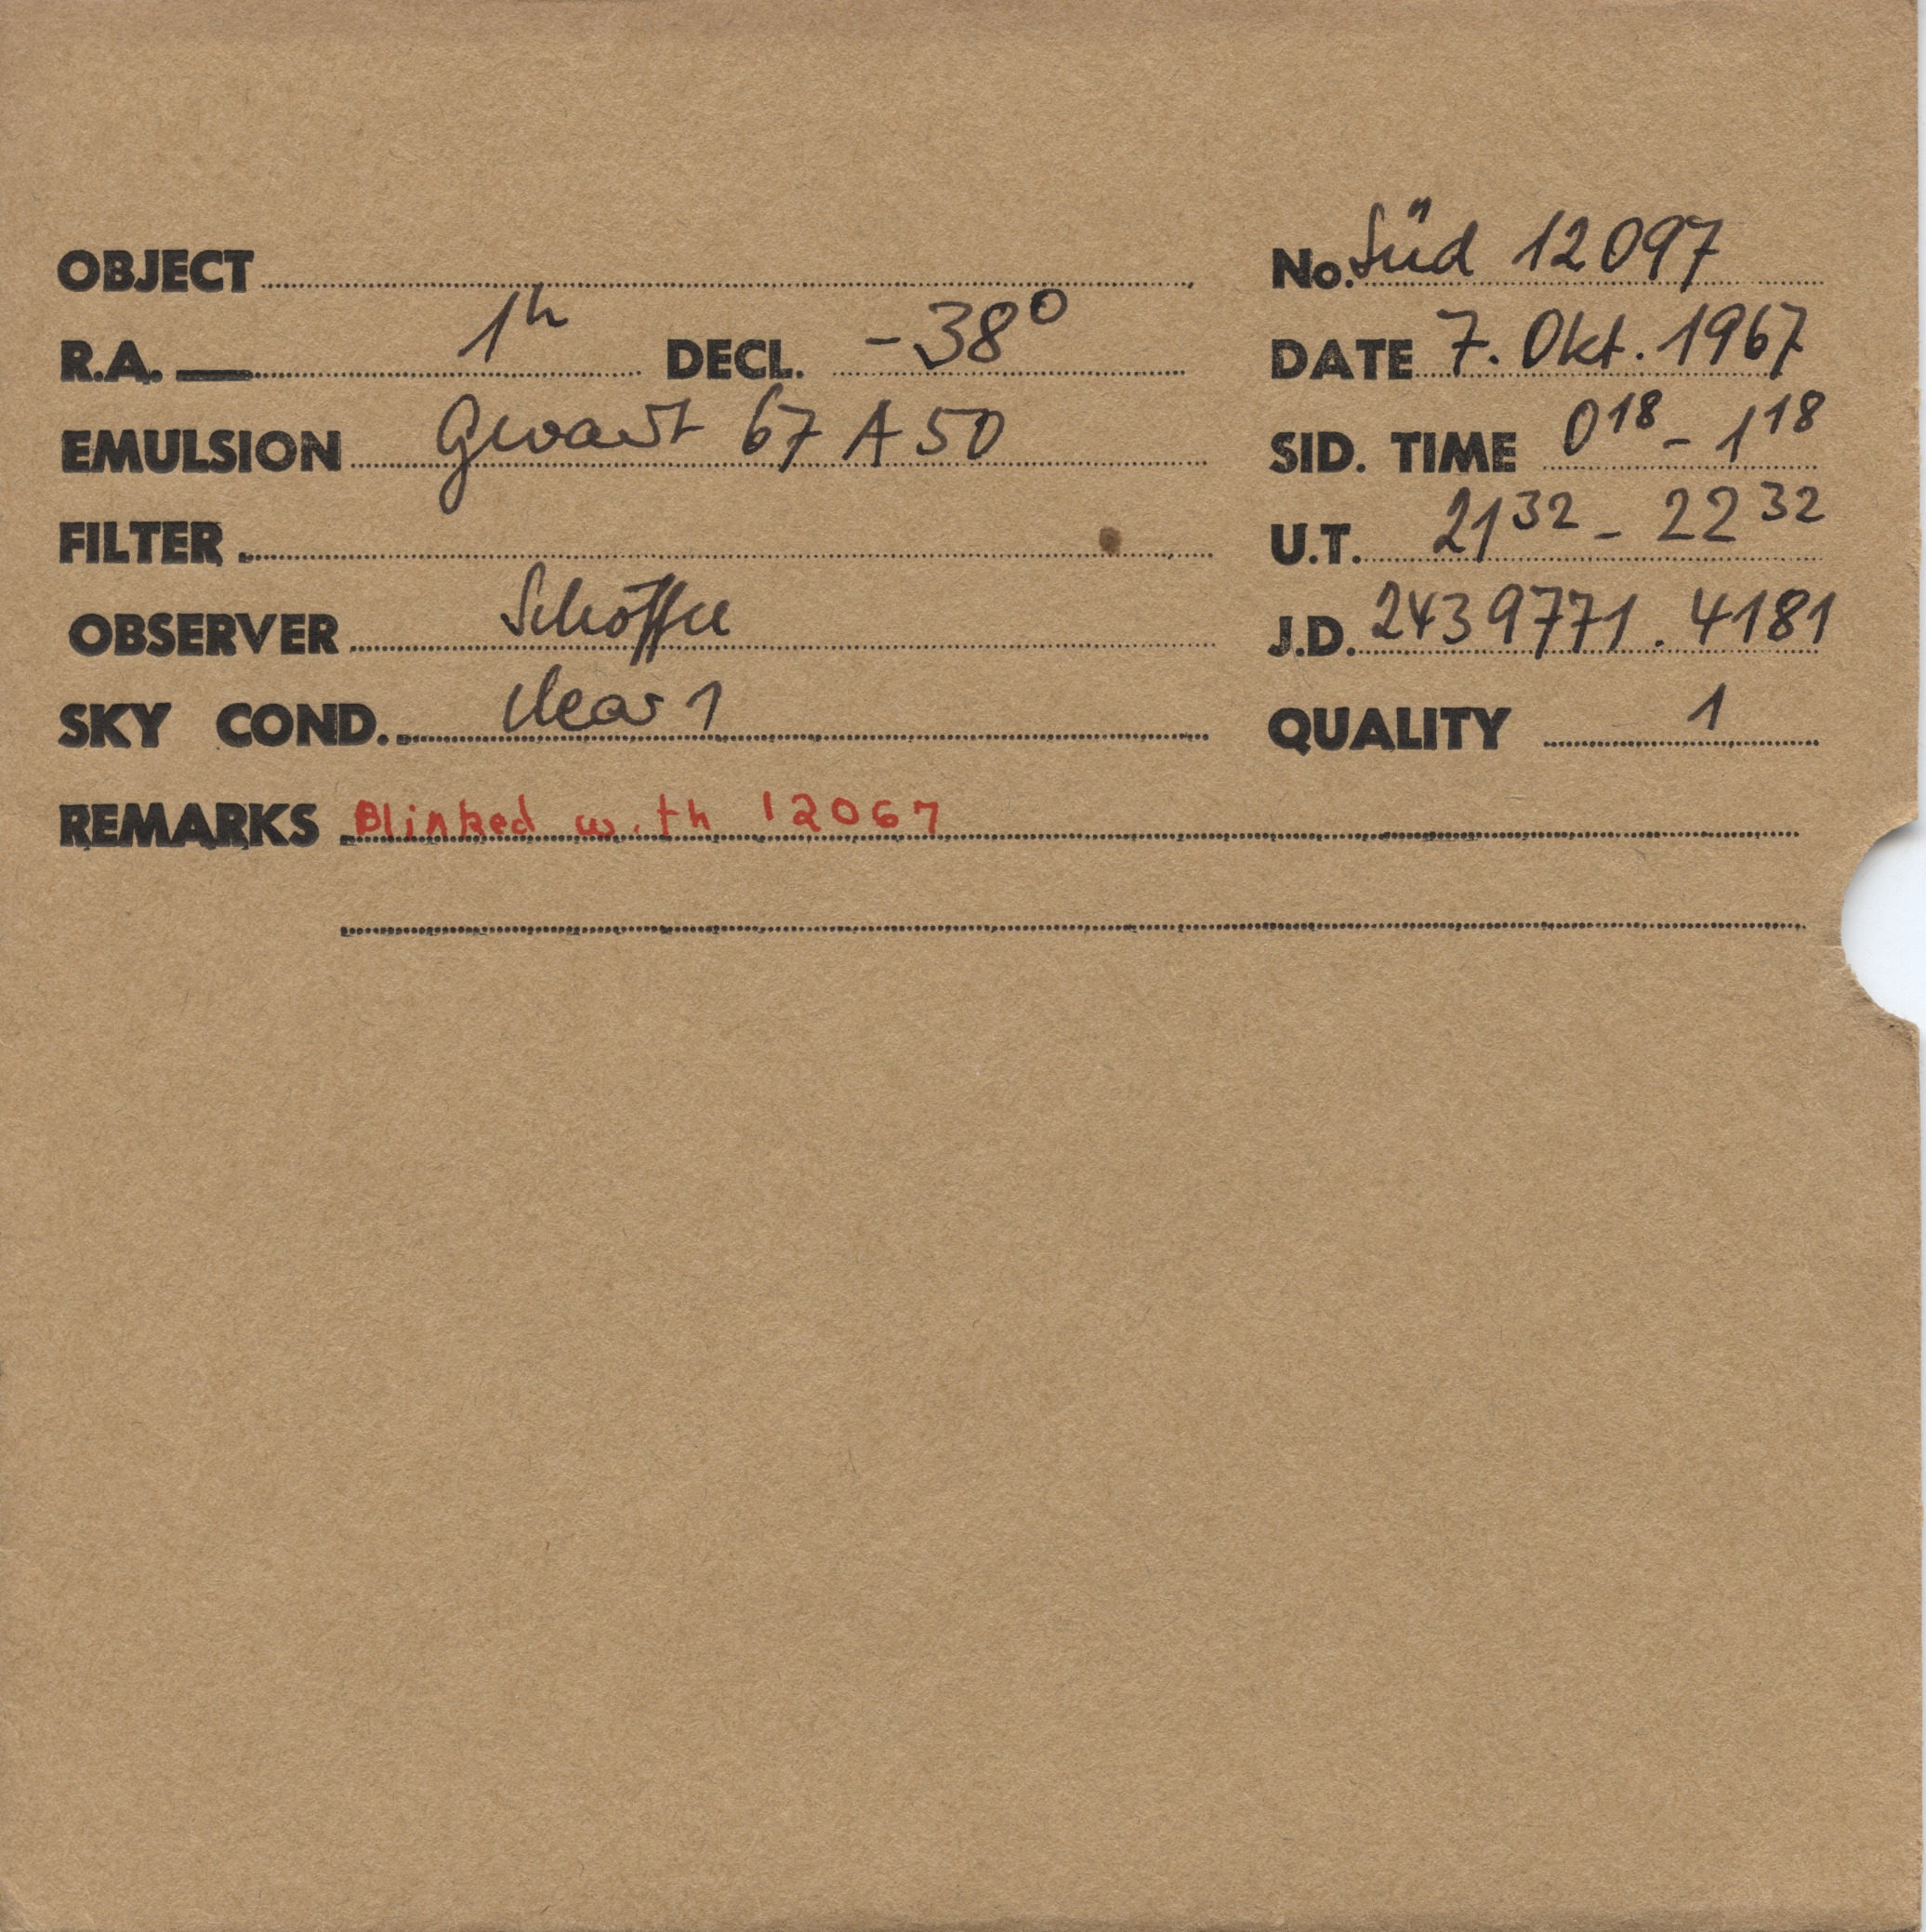 OBJECT No. Süd 12097
R.A. 1h DECL. -38° DATE 7. Okt. 1967
EMULSION Gevaert 67 A 50 SID. TIME 0 18 - 1 18
FILTER U.T. 21 32 - 22 32
OBSERVER J.D. 2439771.4181
SKY COND. clear 1 QUALITY 1
REMARKS Blinked with 12067